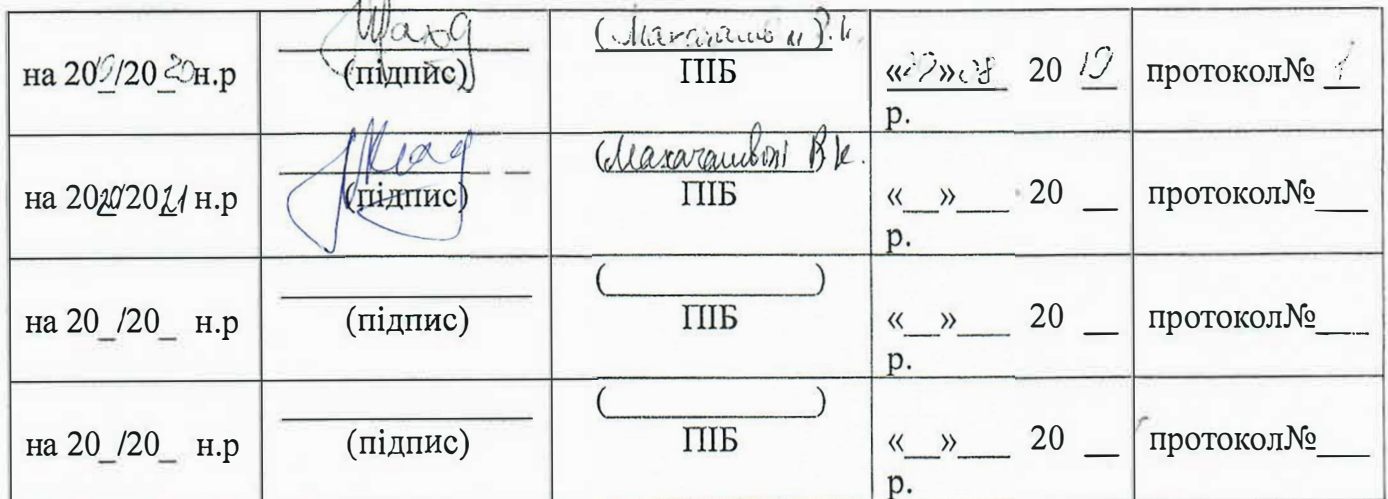 на 2019/2020 н.р
(підпис)
ПІБ
20 19 протокол№ 1
р.
на 2020/2021 н.р
(підпис)
(Махачашвілі
ПІБ
«__»____ 20 __ протокол№___
р.
на 20_/20_ н.р
(підпис)
(__________)
ПІБ
«__»____ 20 __ протокол№___
р.
на 20_/20_ н.р
(підпис)
(__________)
ПІБ
«__»____ 20 __ протокол№___
р.